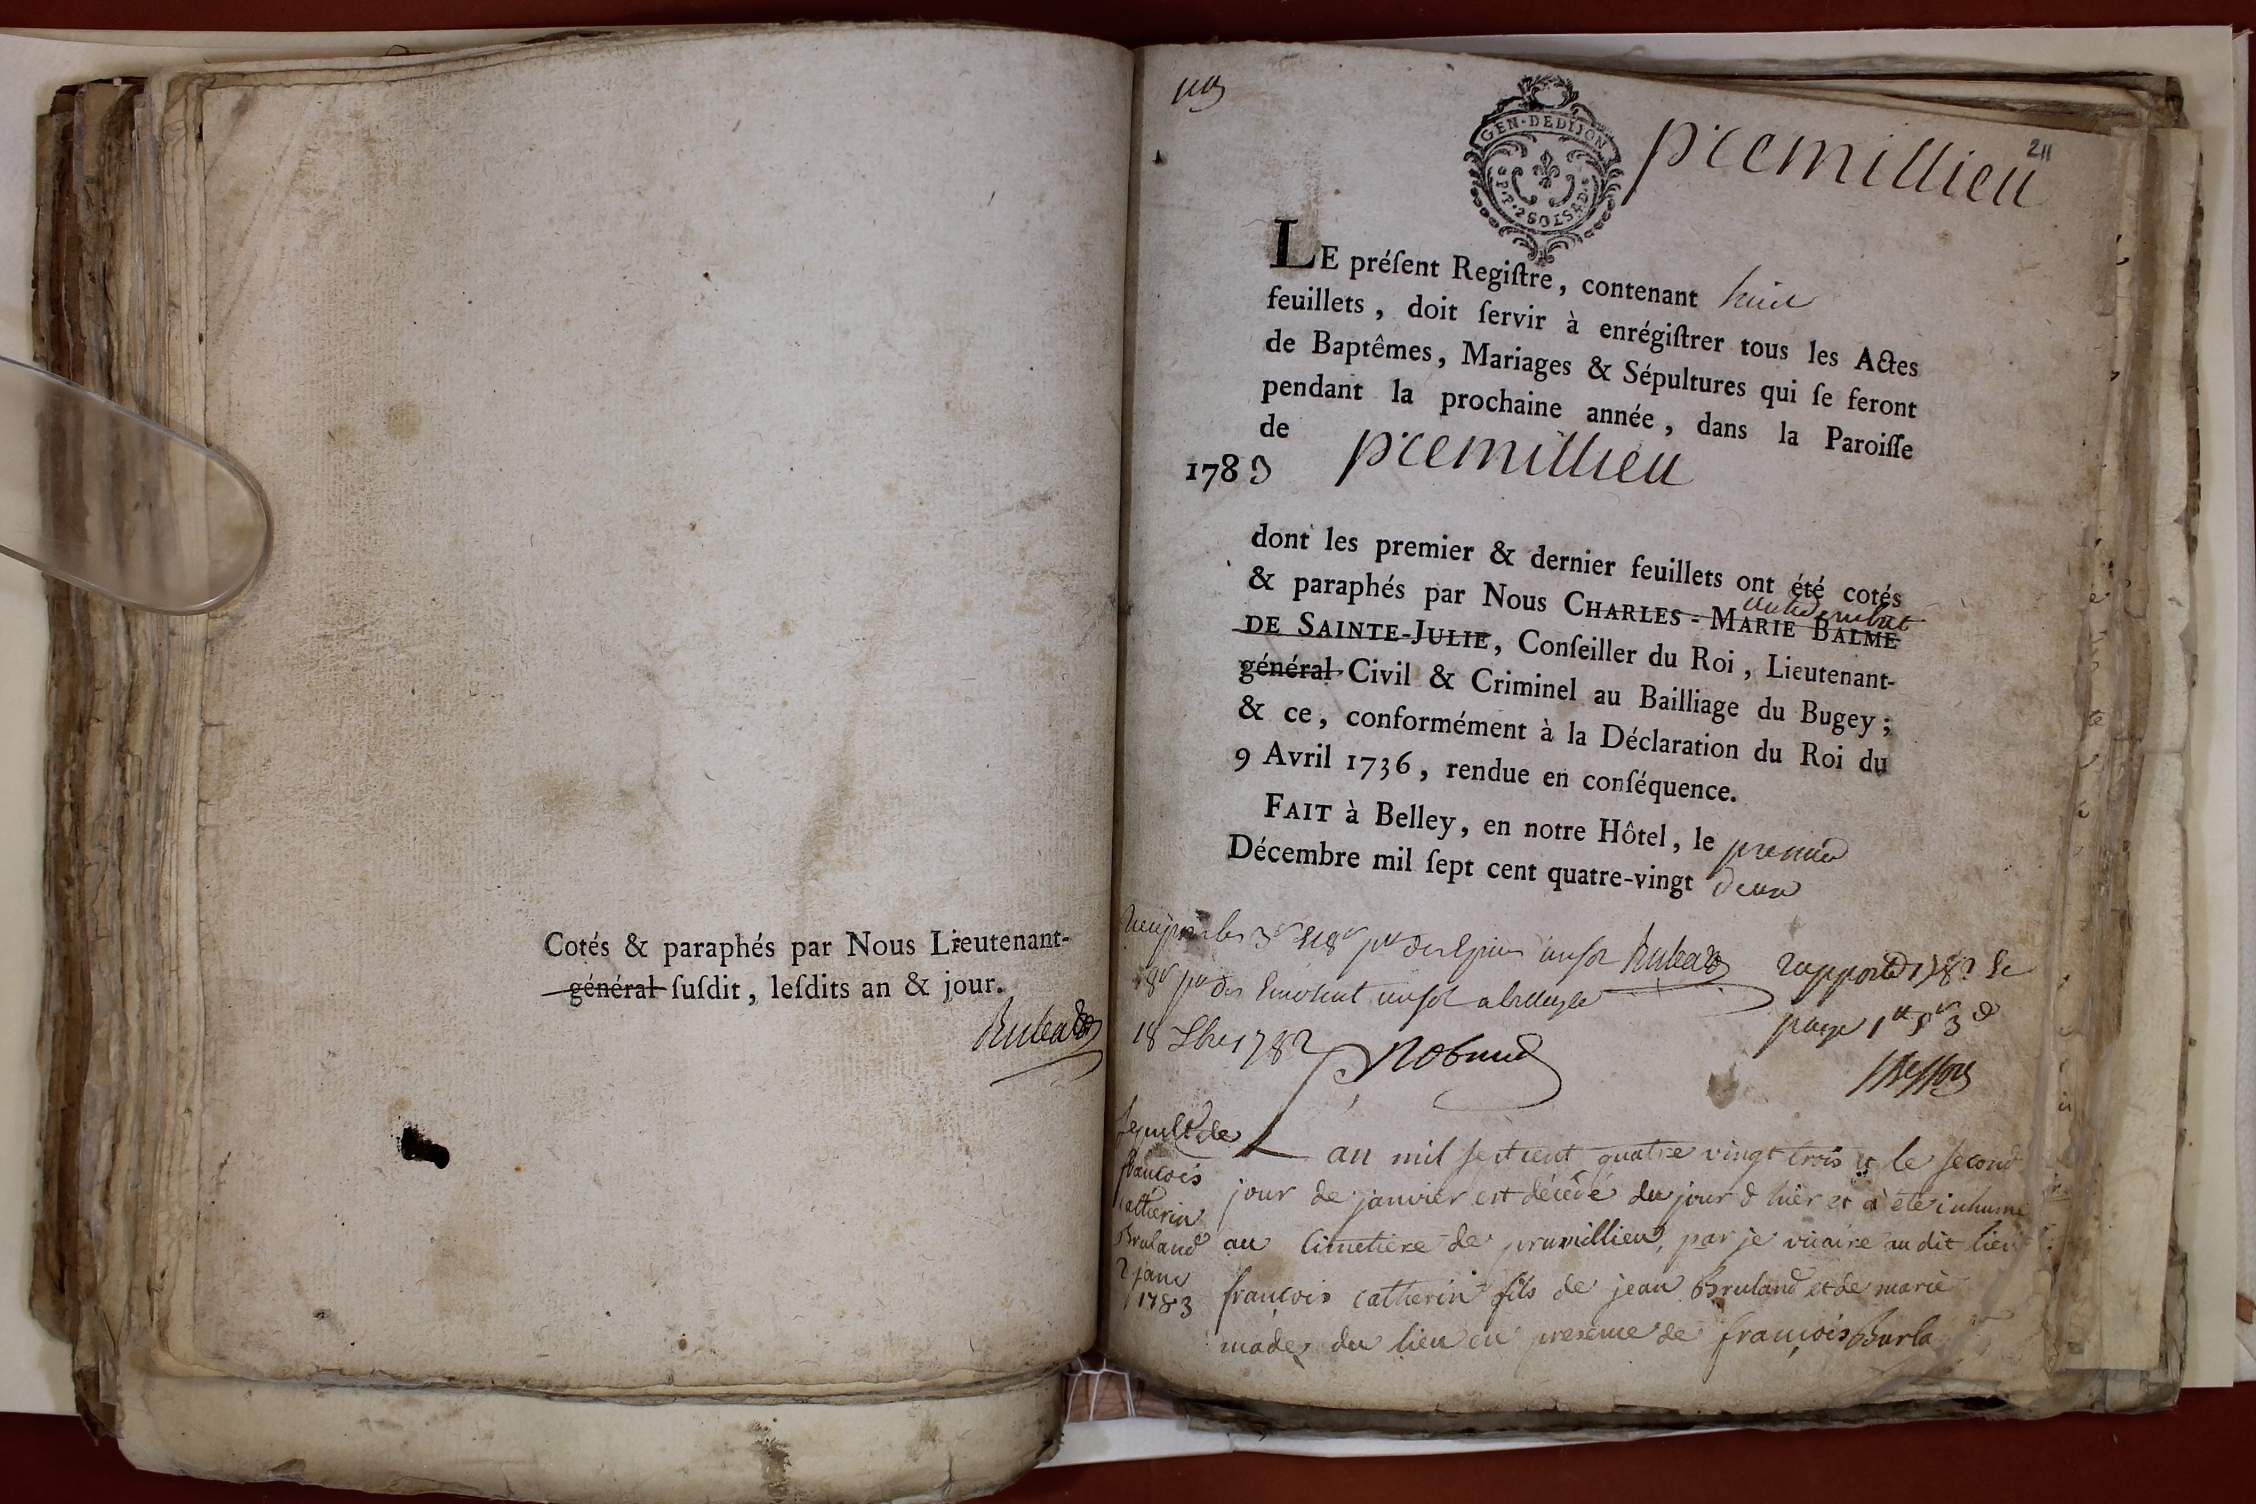 Cotés & paraphés par Nous Lieutenant-
général susdit, lesdits an & jour.
211
GEN·DE DIJON
P.P. 2 SOLS 8 D.
premillieu
LE préſent Regiſtre, contenant huit
feuillets, doit ſervir à enrégiſtrer tous les Actes
de Baptêmes, Mariages & Sépultures qui ſe feront
pendant la prochaine année, dans la Paroiſſe
de premillieu
1783
dont les premier & dernier feuillets ont été cotés
& paraphés par Nous CHARLES-MARIE BALME
DE SAINTE-JULIE, Conſeiller du Roi, Lieutenant-
général Civil & Criminel au Bailliage du Bugey;
& ce, conformément à la Déclaration du Roi du
9 Avril 1736, rendue en conſéquence.
FAIT à Belley, en notre Hôtel, le premier
Décembre mil ſept cent quatre-vingt deux
18 1782
page 1
Sepult de
francois
catherin
Bruland
2 janv
1783
L an mil sept cent quatre vingt trois et le second
jour de janvier est décédé du jour d hier et a été inhumé
au Cimetiere de premillieu, par je vicaire au dit lieu
françois catherin fils de jean Bruland et de marie
du lieu en presence de françois Burla